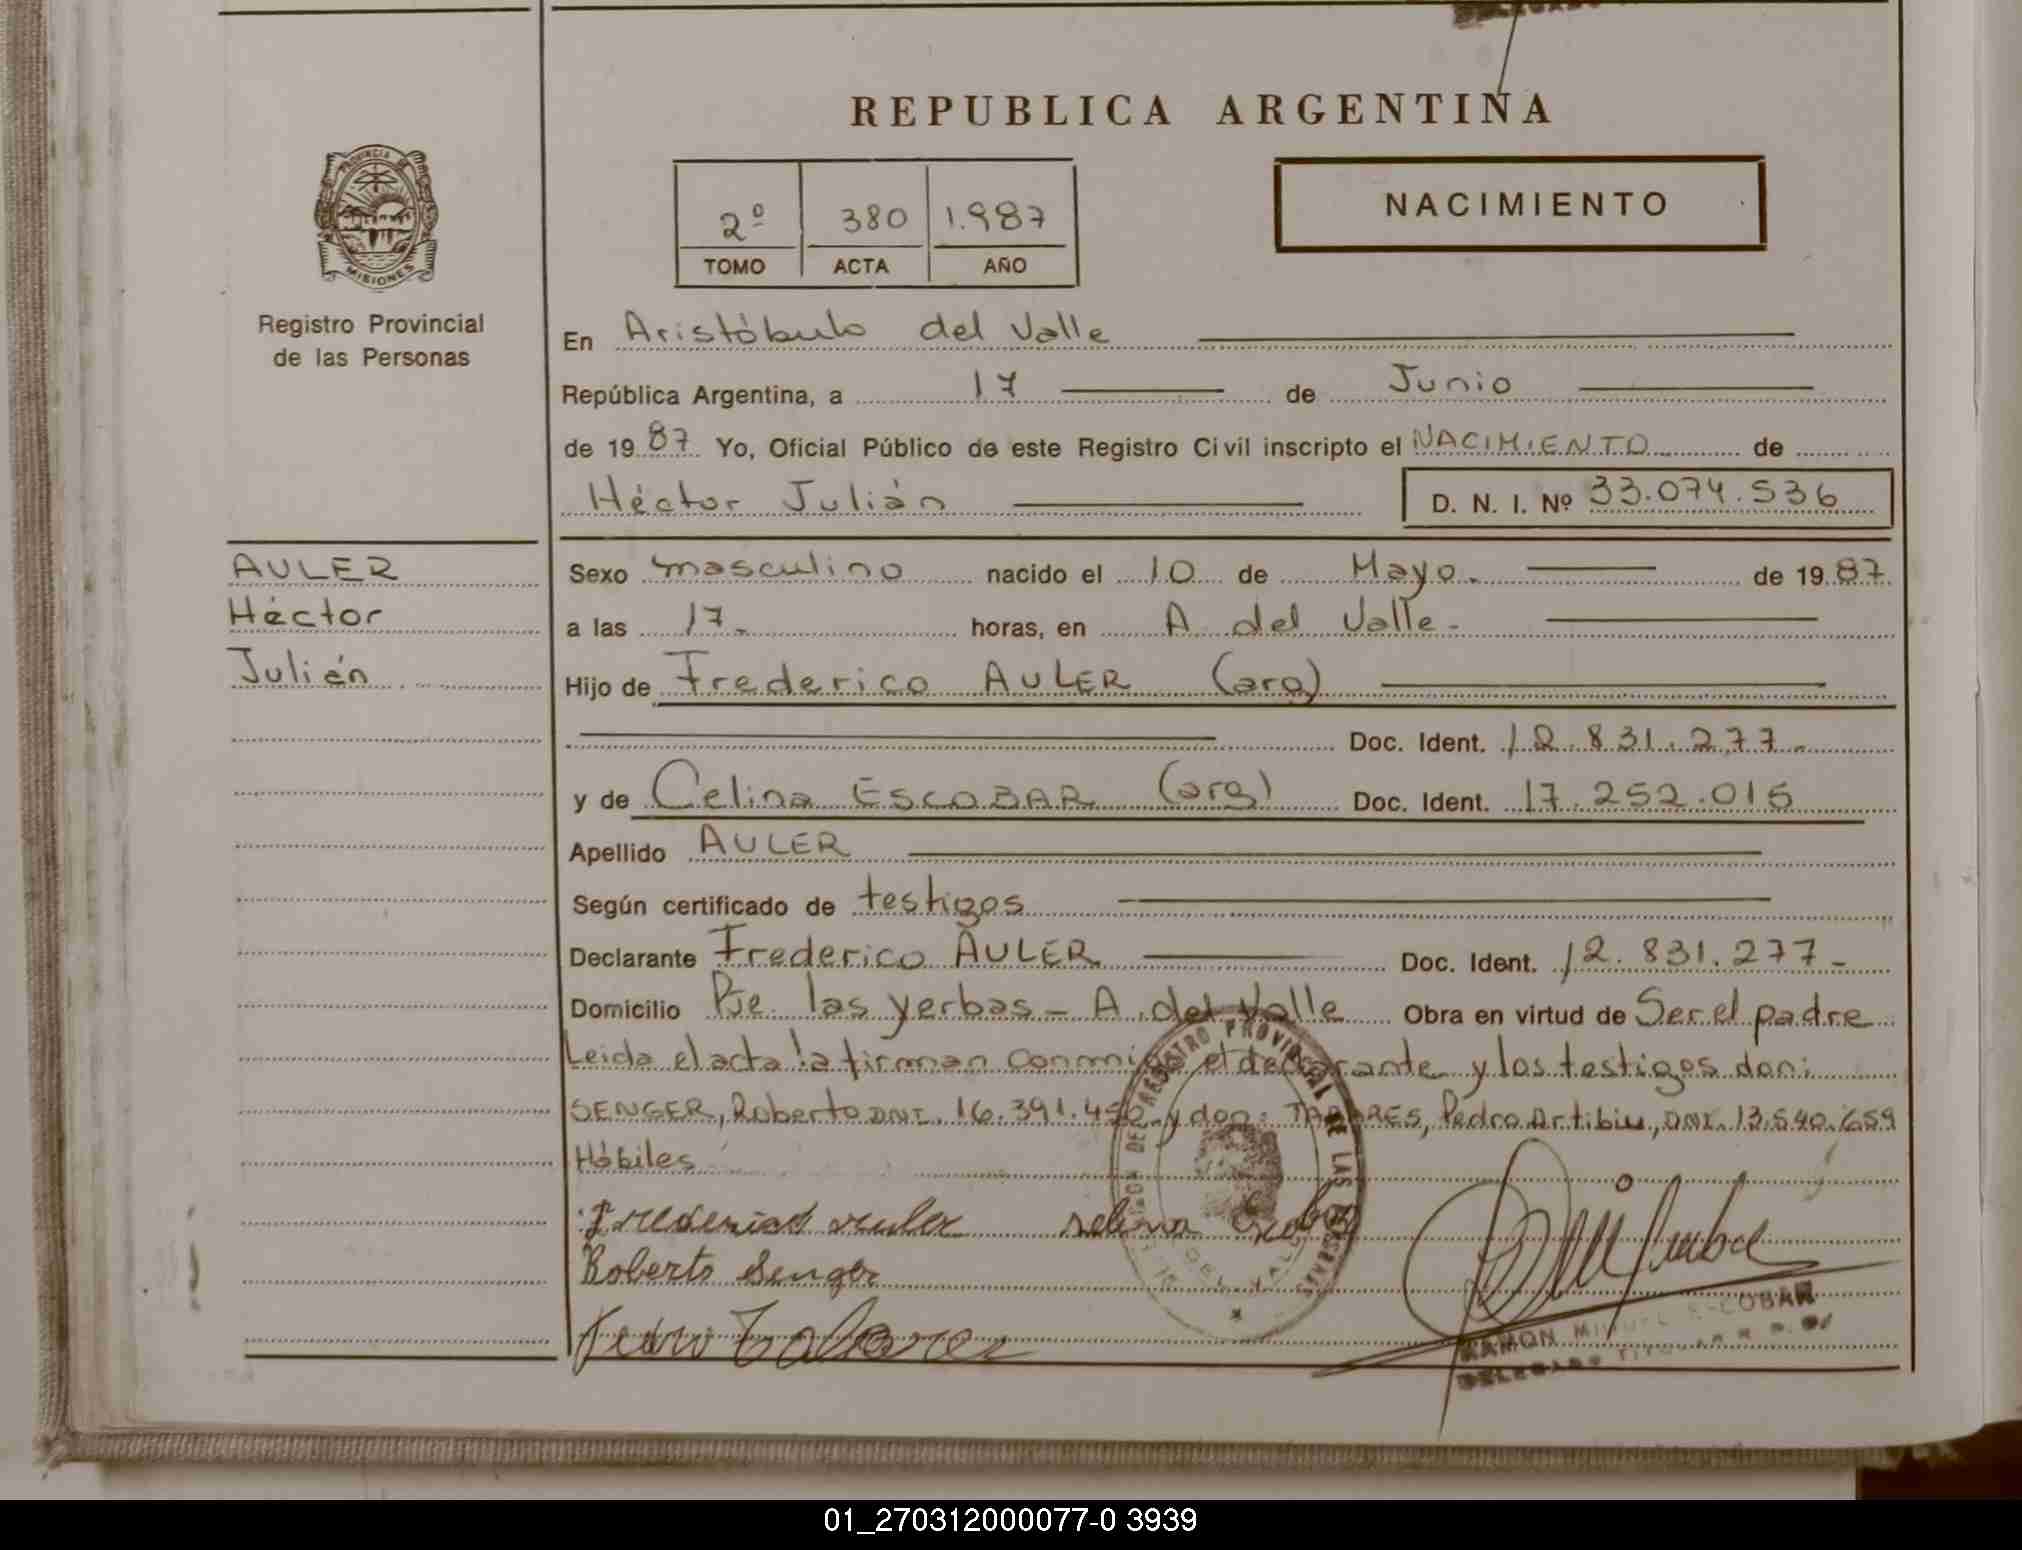 REPUBLICA ARGENTINA
PROVINCIA DE
MISIONES
Registro Provincial
de las Personas
2º 380 1.987
TOMO ACTA AÑO
NACIMIENTO
En Aristóbulo del Valle
República Argentina, a 17 de Junio
de 19 87 Yo, Oficial Público de este Registro Civil inscripto el NACIMIENTO de
Héctor Julián D. N. I. Nº 33.074.536
AULER
Héctor
Julián
Sexo masculino nacido el 10 de Mayo. de 19 87
a las 17. horas, en A. del Valle.
Hijo de Frederico AULER (arg)
Doc. Ident. 12.831.277.
y de Celina ESCOBAR (arg) Doc. Ident. 17.252.015
Apellido AULER
Según certificado de testigos
Declarante Frederico AULER Doc. Ident. 12.831.277-
Domicilio Pje. las yerbas - A. del Valle Obra en virtud de Ser el padre
Leida el acta la firman conmigo el declarante y los testigos don:
SENGER, Roberto DNI. 16.391.450 y don: TABARES, Pedro Artibiu, DNI. 13.540.659
Hábiles
Frederico auler selina Escobar
Roberto Senger
Pedro Tabarez
RAMON MIGUEL ESCOBAR
DELEGADO
01_270312000077-0 3939